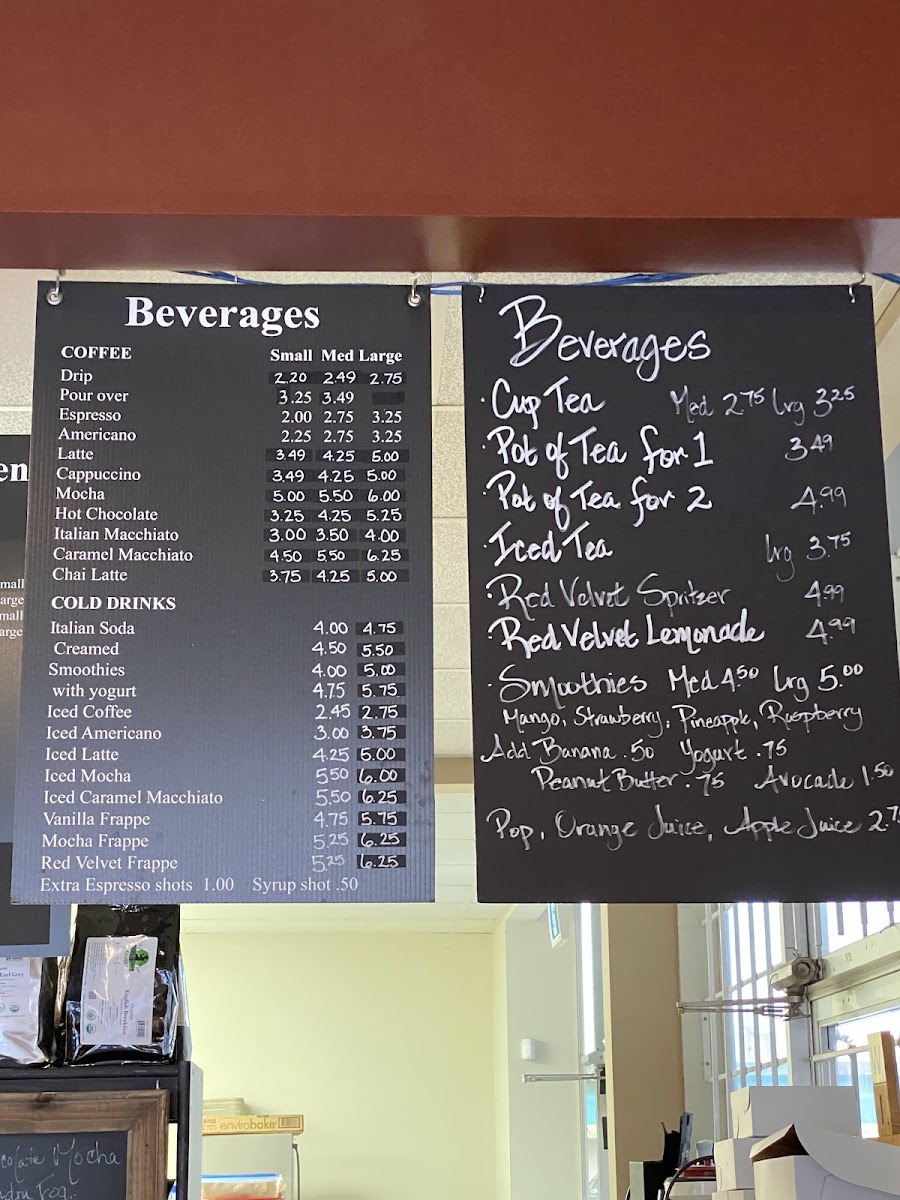 Beverages
COFFEE Small Med Large
Drip 2.20 2.49 2.75
Pour over 3.25 3.49
Espresso 2.00 2.75 3.25
Americano 2.25 2.75 3.25
Latte 3.49 4.25 5.00
Cappuccino 3.49 4.25 5.00
Mocha 5.00 5.50 6.00
Hot Chocolate 3.25 4.25 5.25
Italian Macchiato 3.00 3.50 4.00
Caramel Macchiato 4.50 5.50 6.25
Chai Latte 3.75 4.25 5.00
COLD DRINKS
Italian Soda 4.00 4.75
Creamed 4.50 5.50
Smoothies 4.00 5.00
with yogurt 4.75 5.75
Iced Coffee 2.45 2.75
Iced Americano 3.00 3.75
Iced Latte 4.25 5.00
Iced Mocha 5.50 6.00
Iced Caramel Macchiato 5.50 6.25
Vanilla Frappe 4.75 5.75
Mocha Frappe 5.25 6.25
Red Velvet Frappe 5.25 6.25
Extra Espresso shots 1.00 Syrup shot .50
Beverages
· Cup Tea Med 2.75 lrg 3.25
· Pot of Tea for 1 3.49
· Pot of Tea for 2 4.99
· Iced Tea lrg 3.75
· Red Velvet Spritzer 4.99
· Red Velvet Lemonade 4.99
· Smoothies Med 4.50 lrg 5.00
Mango, Strawberry, Pineapple, Raspberry
Add Banana .50 Yogurt .75
Peanut Butter .75 Avocado 1.50
Pop, Orange Juice, Apple Juice 2.75
en
mall
arge
mall
arge
Earl Grey
English Breakfast
envirobake
colate Mocha
Fog